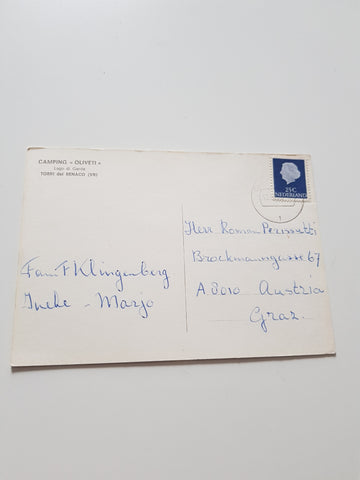 CAMPING « OLIVETI »
Lago di Garda
TORRI del BENACO (VR)
25C
NEDERLAND
1
Herr Roman Perissutti
Brockmanngasse 67
A 8010 Austria
Graz.
Fam. F Klingenberg
Ineke - Marjo